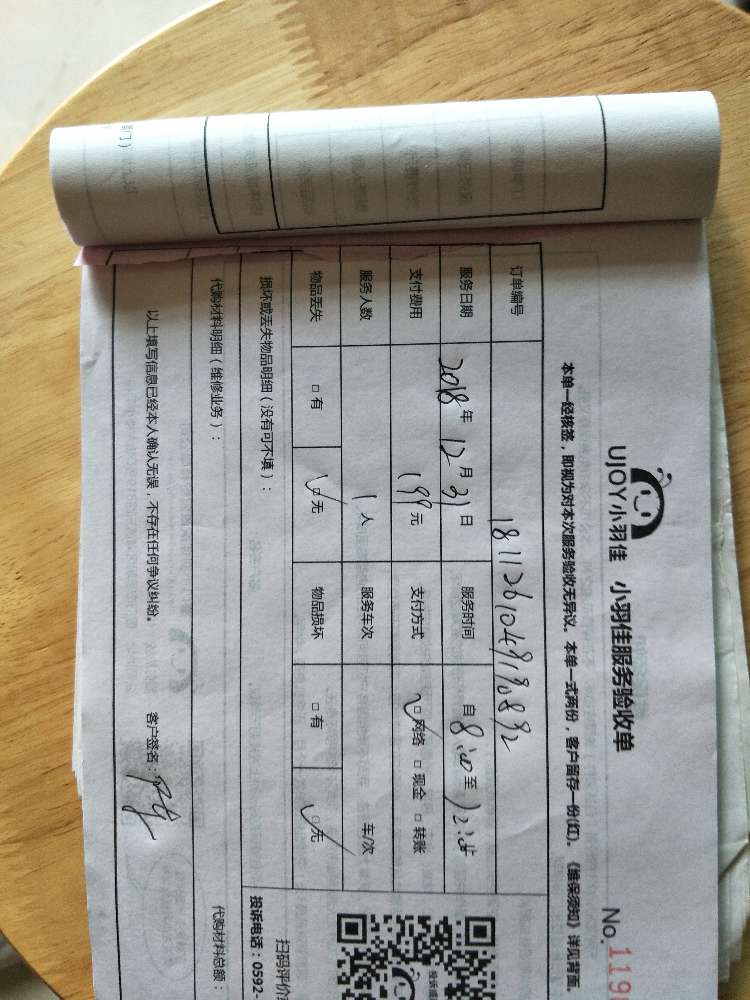 UJOY小羽佳 小羽佳服务验收单
No.119
本单一经核签，即视为对本次服务验收无异议。本单一式两份，客户留存一份(红)。《维保须知》详见背面。
订单编号
服务日期 2018年12月31日 服务时间 自8:00至12:00
支付费用 199元 支付方式 ☑网络 □现金 □转账
服务人数 1人 服务车次 车/次
物品丢失 □有 ☑无 物品损坏 □有 ☑无
损坏或丢失物品明细（没有可不填）：
代购材料明细（维修业务）： 代购材料总额：
以上填写信息已经本人确认无误，不存在任何争议纠纷。 客户签名：
扫码评价
投诉电话：0592-